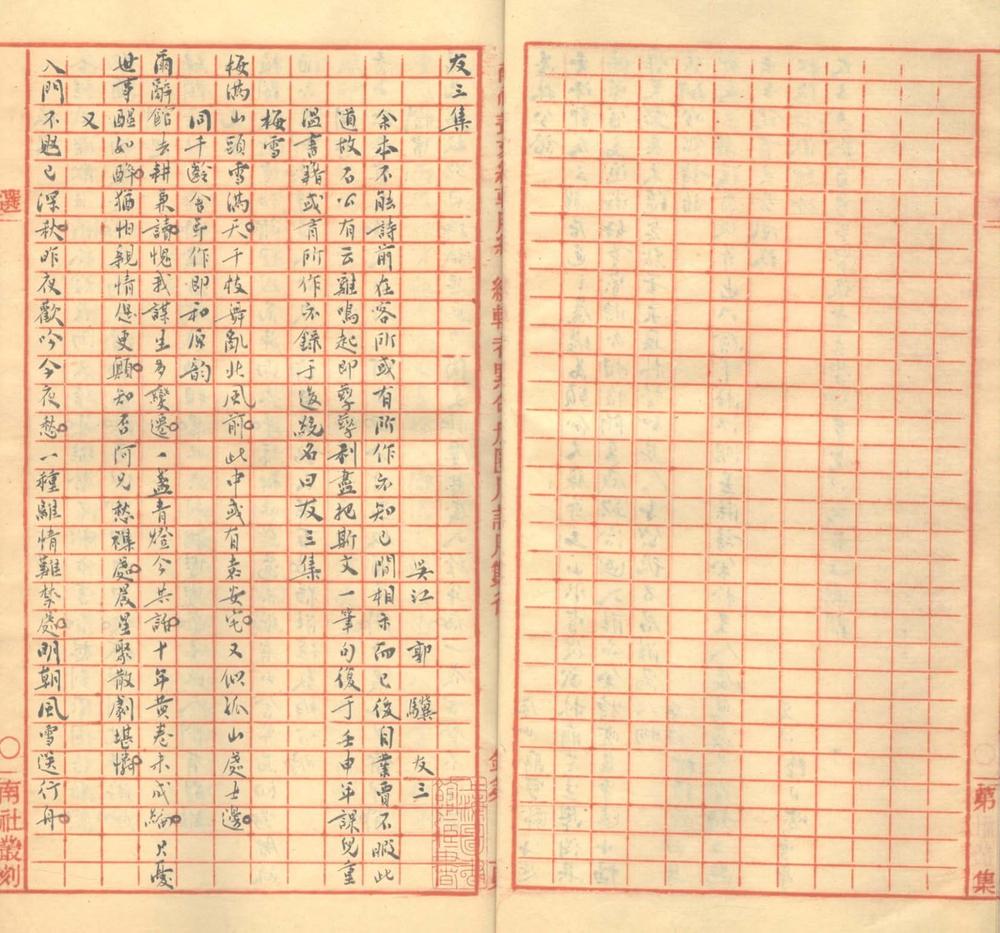 友三集
吳江 郭驥 友三
余本不能詩前在客所或有所作亦知已間相示而已後因業賈不暇此
道故石公有云雞鳴起即孳孳利盡把斯文一筆勾後于壬申年課兒重
溫書籍或有所作亦錄于後統名曰友三集
梅雪
梅滿山頭雪滿天千枝舞亂北風前此中或有袁安宅又似孤山處士邊
同千齡舍弟作即和原韵
爾辭館去耕兼讀愧我謀生多變遷一盞青燈今共話十年黃卷未成編只憂
世事醒如醉猶怕親情假更顛知否阿兄愁襍處晨星聚散劇堪憐
又
入門不覺已深秋昨夜歡吟今夜愁一種離情難禁處明朝風雪送行舟
選
南社叢刻
第
集